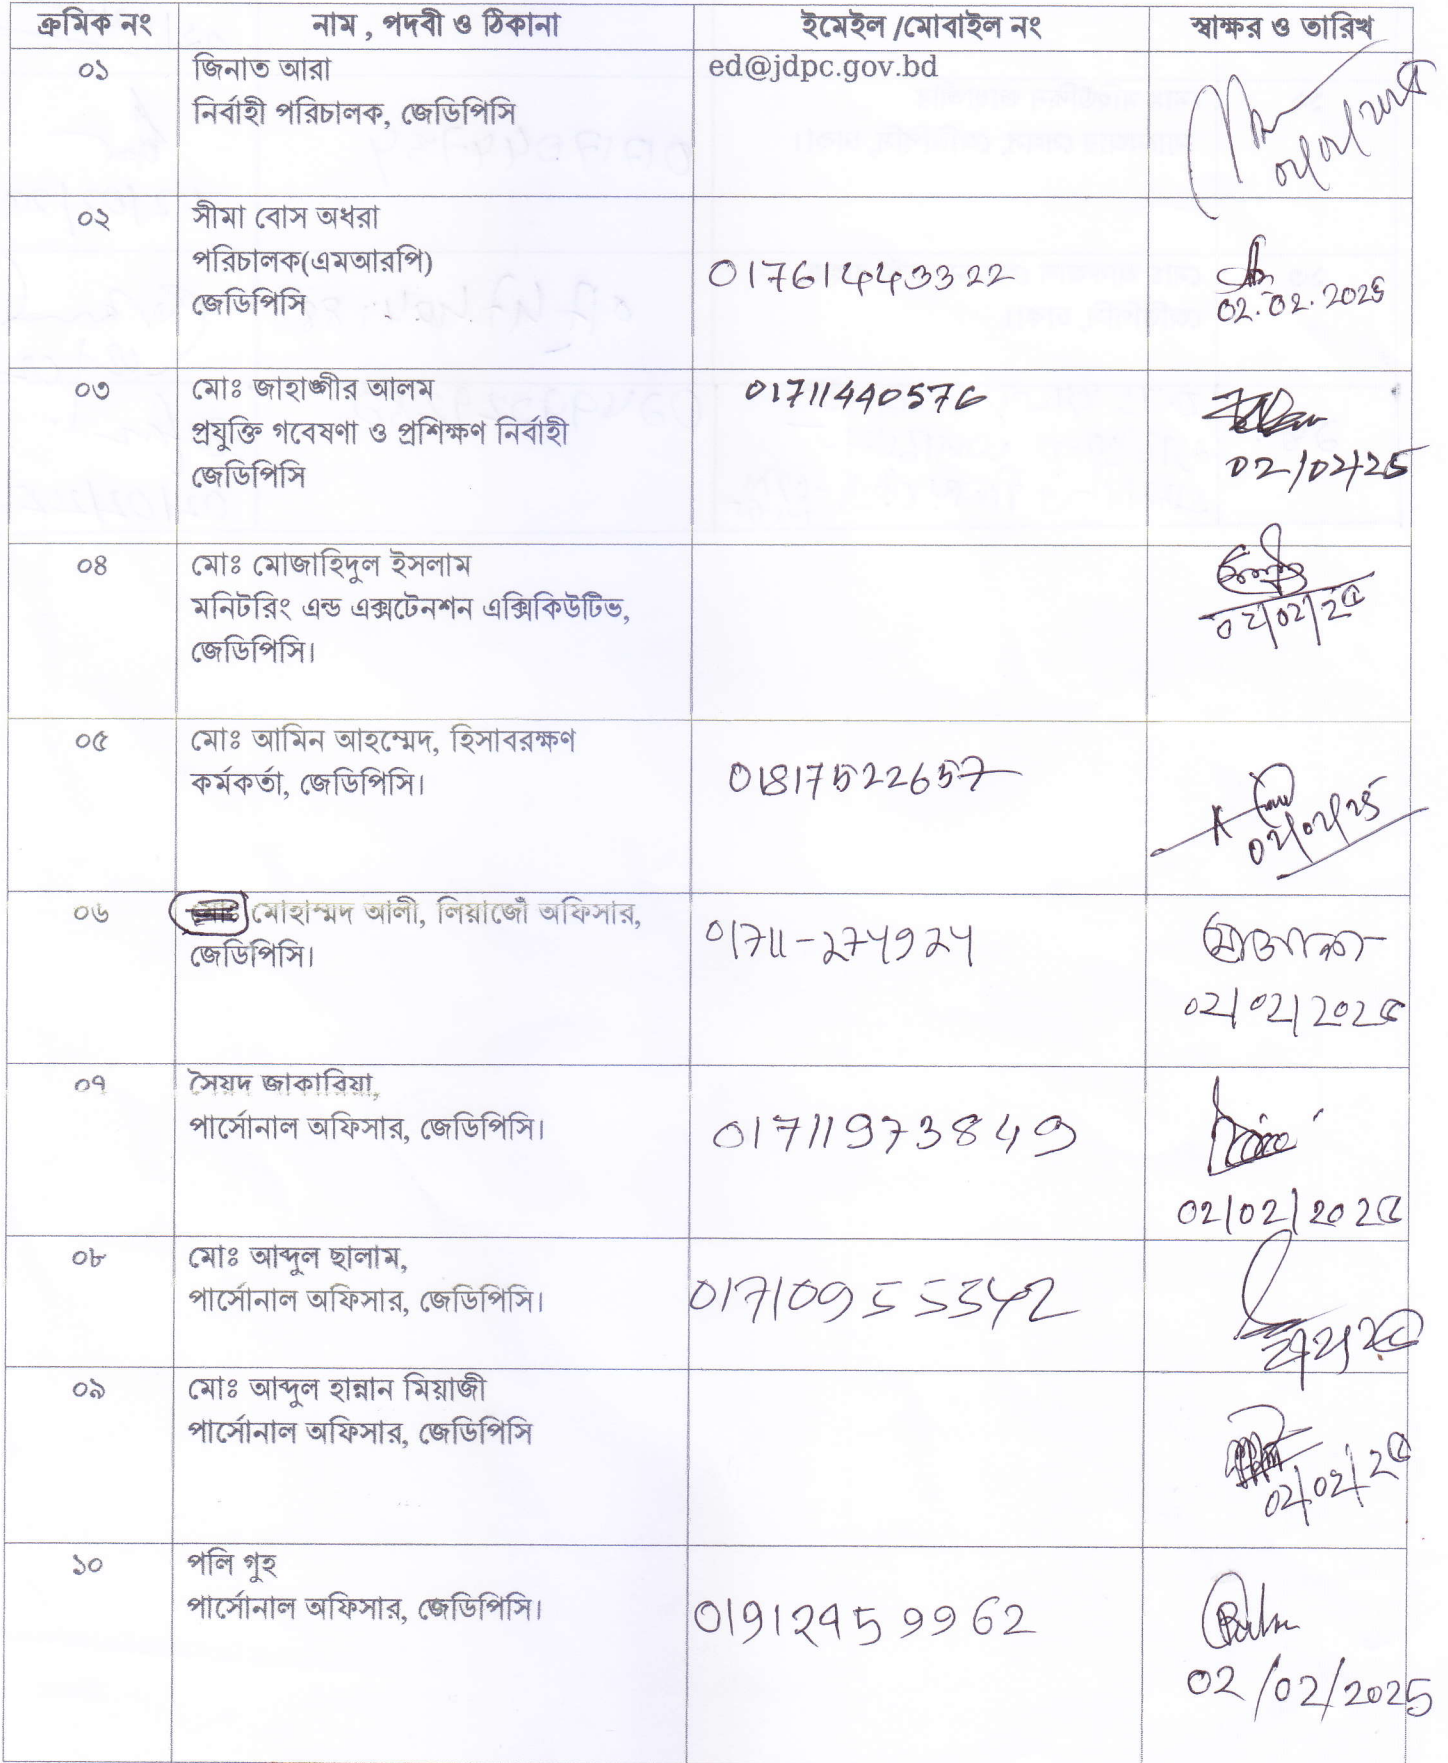 ক্রমিক নং নাম , পদবী ও ঠিকানা ইমেইল /মোবাইল নং স্বাক্ষর ও তারিখ
০১ জিনাত আরা ed@jdpc.gov.bd
নির্বাহী পরিচালক, জেডিপিসি
০২ সীমা বোস অধরা
পরিচালক(এমআরপি) 01761443322
জেডিপিসি 02.02.2025
০৩ মোঃ জাহাঙ্গীর আলম 01711440576
প্রযুক্তি গবেষণা ও প্রশিক্ষণ নির্বাহী
জেডিপিসি 02/02/25
০৪ মোঃ মোজাহিদুল ইসলাম
মনিটরিং এন্ড এক্সটেনশন এক্সিকিউটিভ, 02/02/2৫
জেডিপিসি।
০৫ মোঃ আমিন আহম্মেদ, হিসাবরক্ষণ
কর্মকর্তা, জেডিপিসি। 01817522657
02/02/25
০৬ মোহাম্মদ আলী, লিয়াজোঁ অফিসার,
জেডিপিসি। 01711-274924
02/02/202৫
০৭ সৈয়দ জাকারিয়া,
পার্সোনাল অফিসার, জেডিপিসি। 01711973849
02/02/202৫
০৮ মোঃ আব্দুল ছালাম,
পার্সোনাল অফিসার, জেডিপিসি। 01710955342
০৯ মোঃ আব্দুল হান্নান মিয়াজী
পার্সোনাল অফিসার, জেডিপিসি
02/02/2৫
১০ পলি গুহ
পার্সোনাল অফিসার, জেডিপিসি। 01912959962
02/02/2025